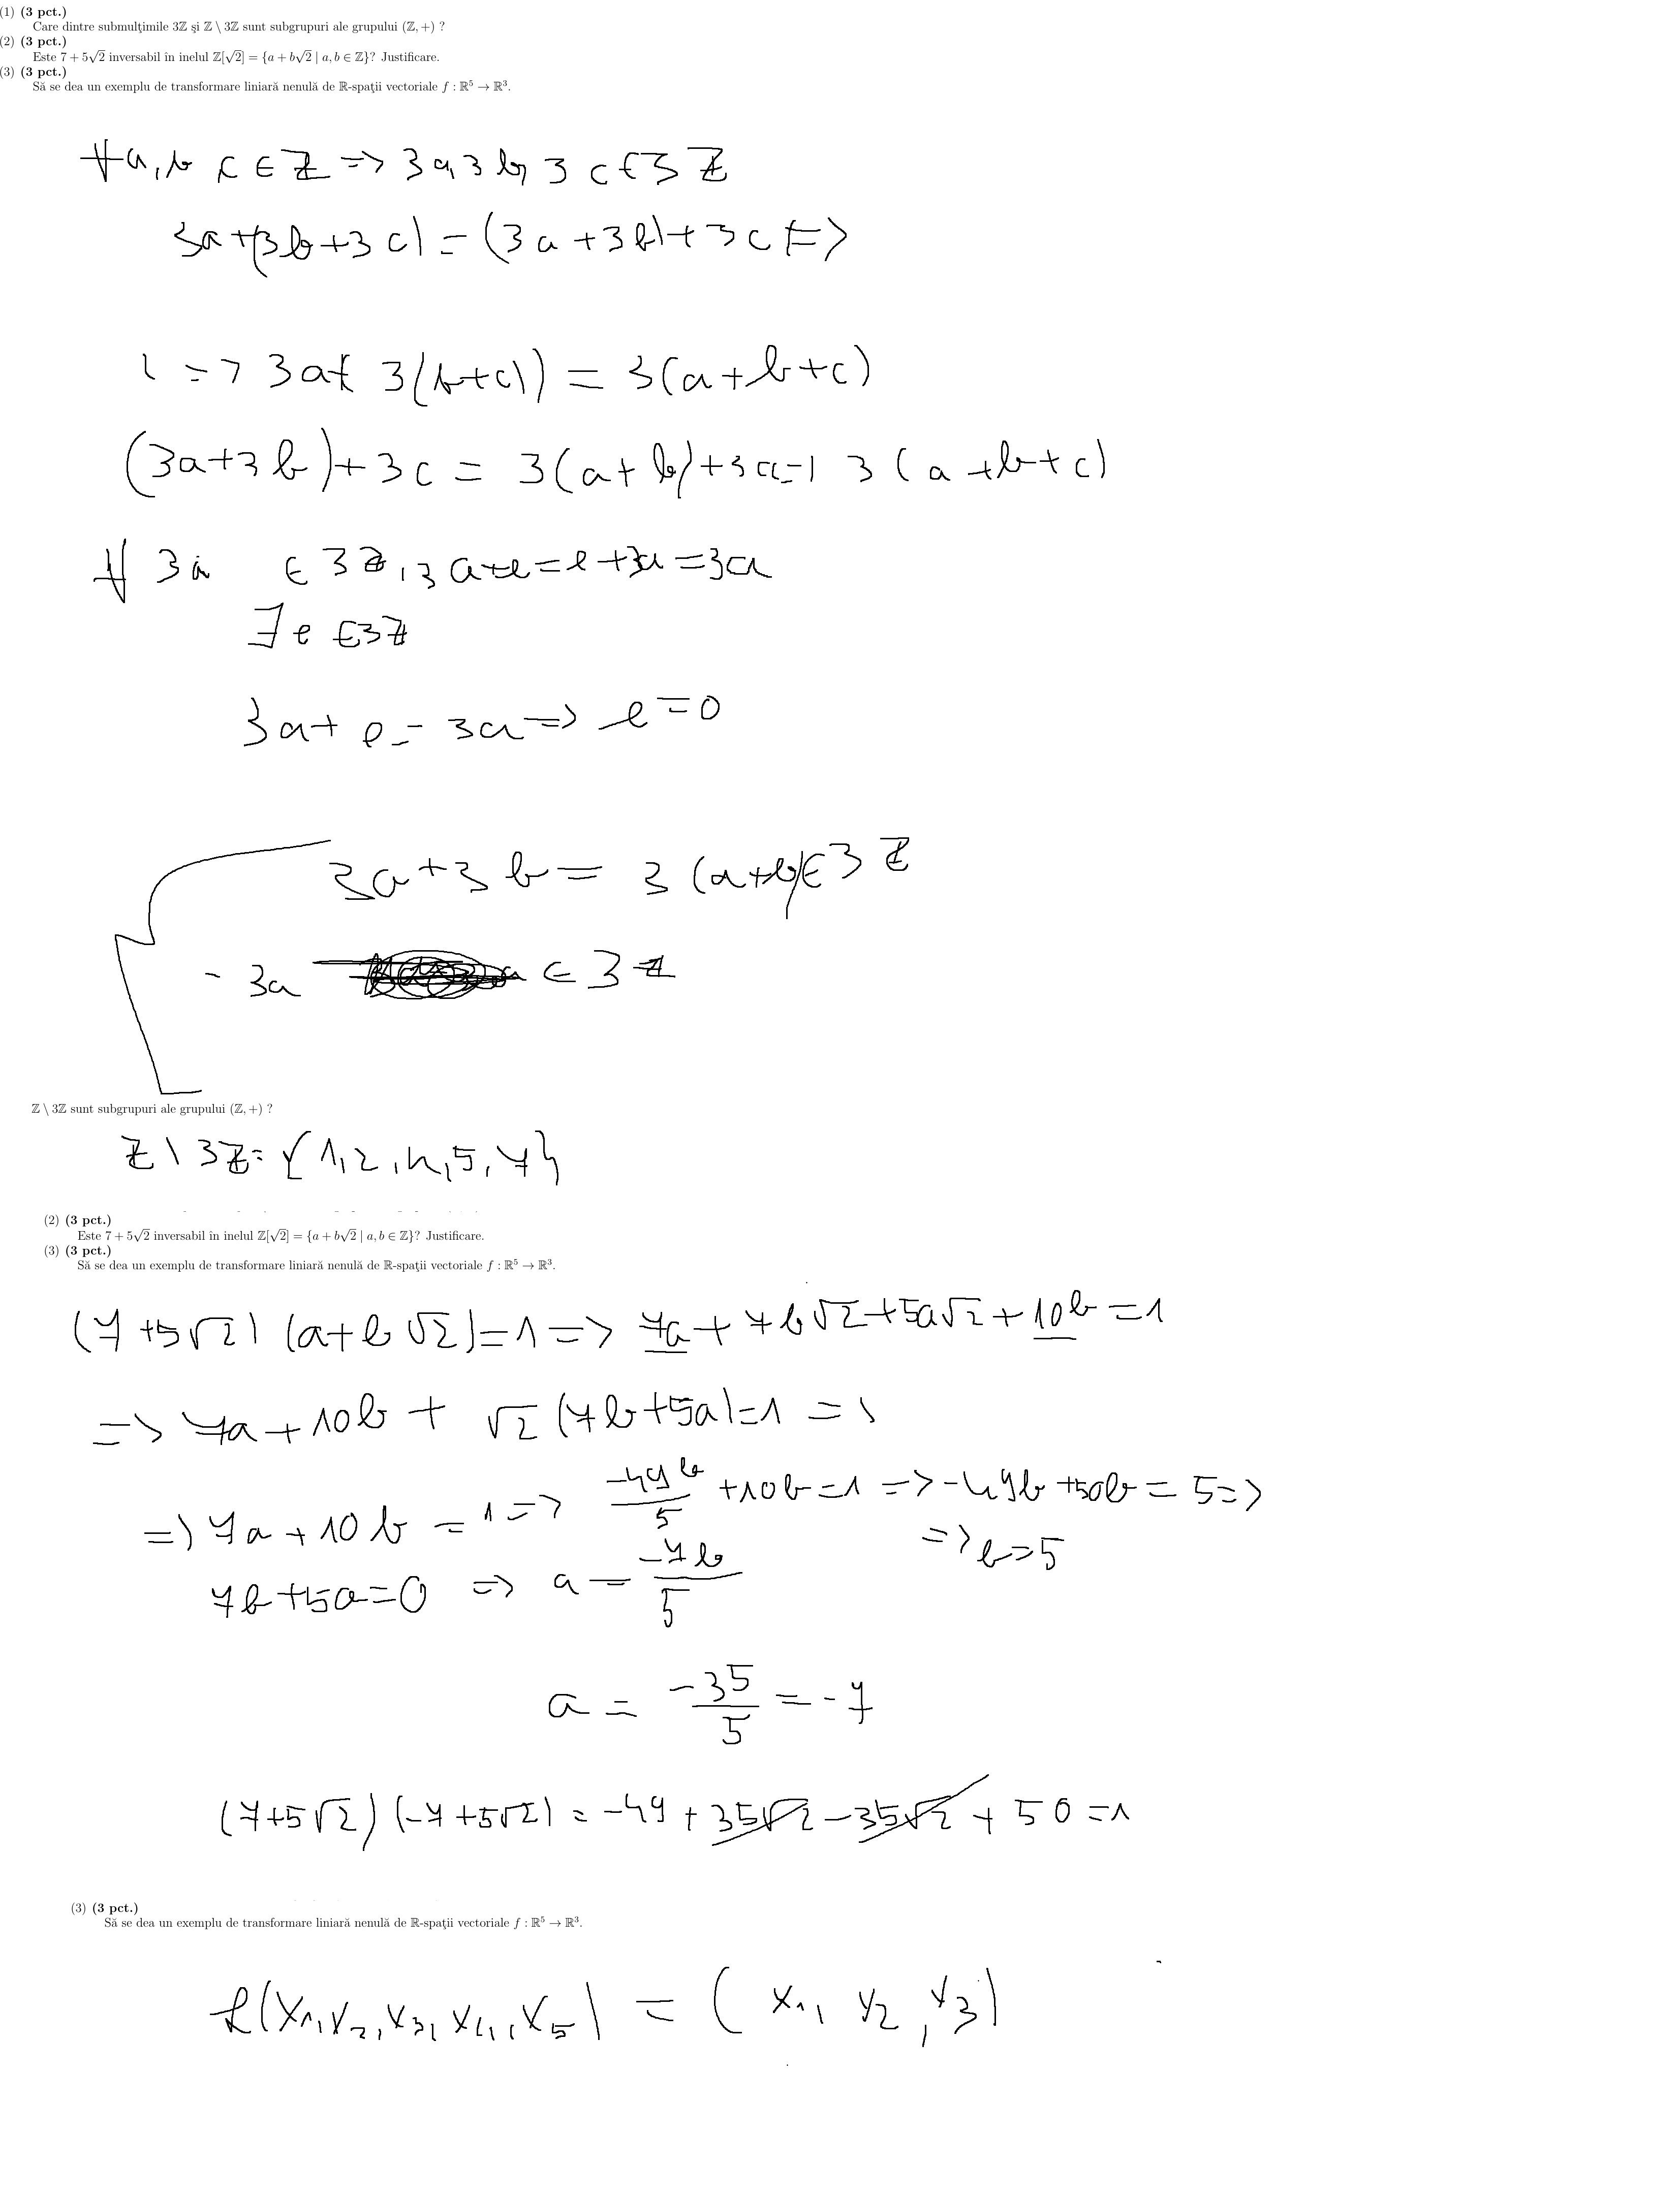 (1) (3 pct.)
Care dintre submulţimile 3ℤ şi ℤ \ 3ℤ sunt subgrupuri ale grupului (ℤ, +) ?
(2) (3 pct.)
Este 7 + 5√2 inversabil în inelul ℤ[√2] = {a + b√2 | a, b ∈ ℤ}? Justificare.
(3) (3 pct.)
Să se dea un exemplu de transformare liniară nenulă de ℝ-spaţii vectoriale f : ℝ⁵ → ℝ³.
∀a, b c ∈ ℤ => 3a, 3b, 3c ∈ 3ℤ
3a+(3b+3c) = (3a+3b)+3c =>
=> 3a+ 3(b+c)) = 3(a+b+c)
(3a+3b)+3c = 3(a+b)+3c = 3(a+b+c)
∀ 3a ∈ 3ℤ, 3a+e=e+3a=3a
∃e ∈3ℤ
3a+e = 3a => e=0
3a+3b = 3(a+b)∈3ℤ
-3a ∈ 3ℤ
ℤ \ 3ℤ sunt subgrupuri ale grupului (ℤ, +) ?
ℤ \ 3ℤ = {1, 2, 4, 5, 7}
(2) (3 pct.)
Este 7 + 5√2 inversabil în inelul ℤ[√2] = {a + b√2 | a, b ∈ ℤ}? Justificare.
(3) (3 pct.)
Să se dea un exemplu de transformare liniară nenulă de ℝ-spaţii vectoriale f : ℝ⁵ → ℝ³.
(7+5√2) (a+b√2)=1 => 7a+7b√2+5a√2+10b=1
=> 7a+10b+ √2(7b+5a)=1 =>
=> 7a+10b = 1 => -49b/5 +10b=1 => -49b+50b = 5 =>
=> b=5
7b+5a=0 => a = -7b/5
a = -35/5 = -7
(7+5√2) (-7+5√2) = -49 + 35√2 - 35√2 + 50 = 1
(3) (3 pct.)
Să se dea un exemplu de transformare liniară nenulă de ℝ-spaţii vectoriale f : ℝ⁵ → ℝ³.
f(x₁, x₂, x₃, x₄, x₅) = (x₁, x₂, x₃)